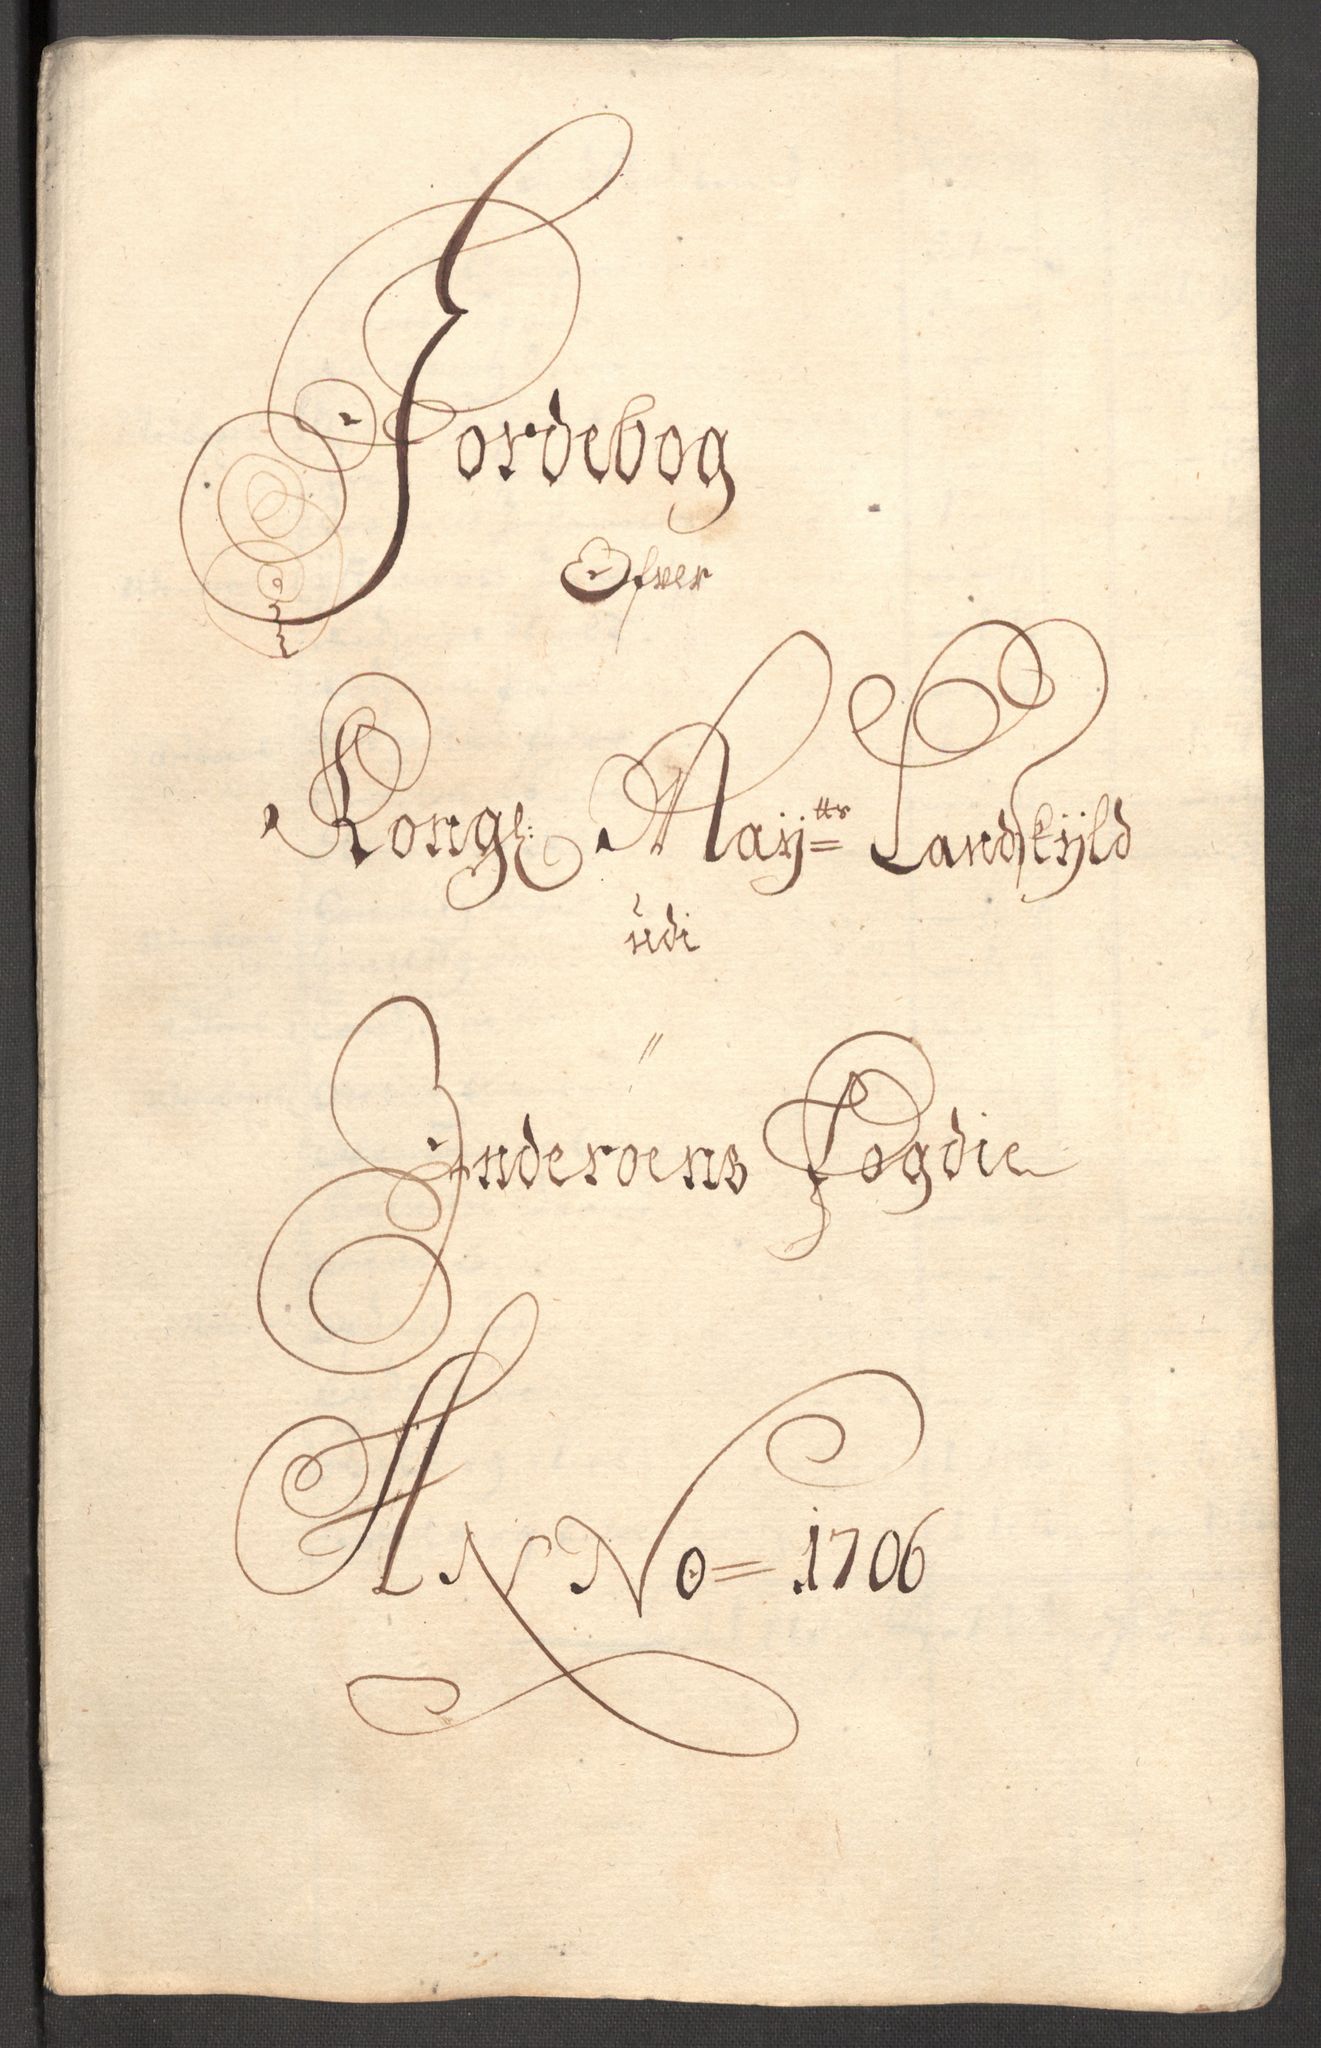 Jordebog
Ofver
Kongl: Maÿ=tts Landskÿld
udi
Inderoens Fogdie
ANNo= 1706